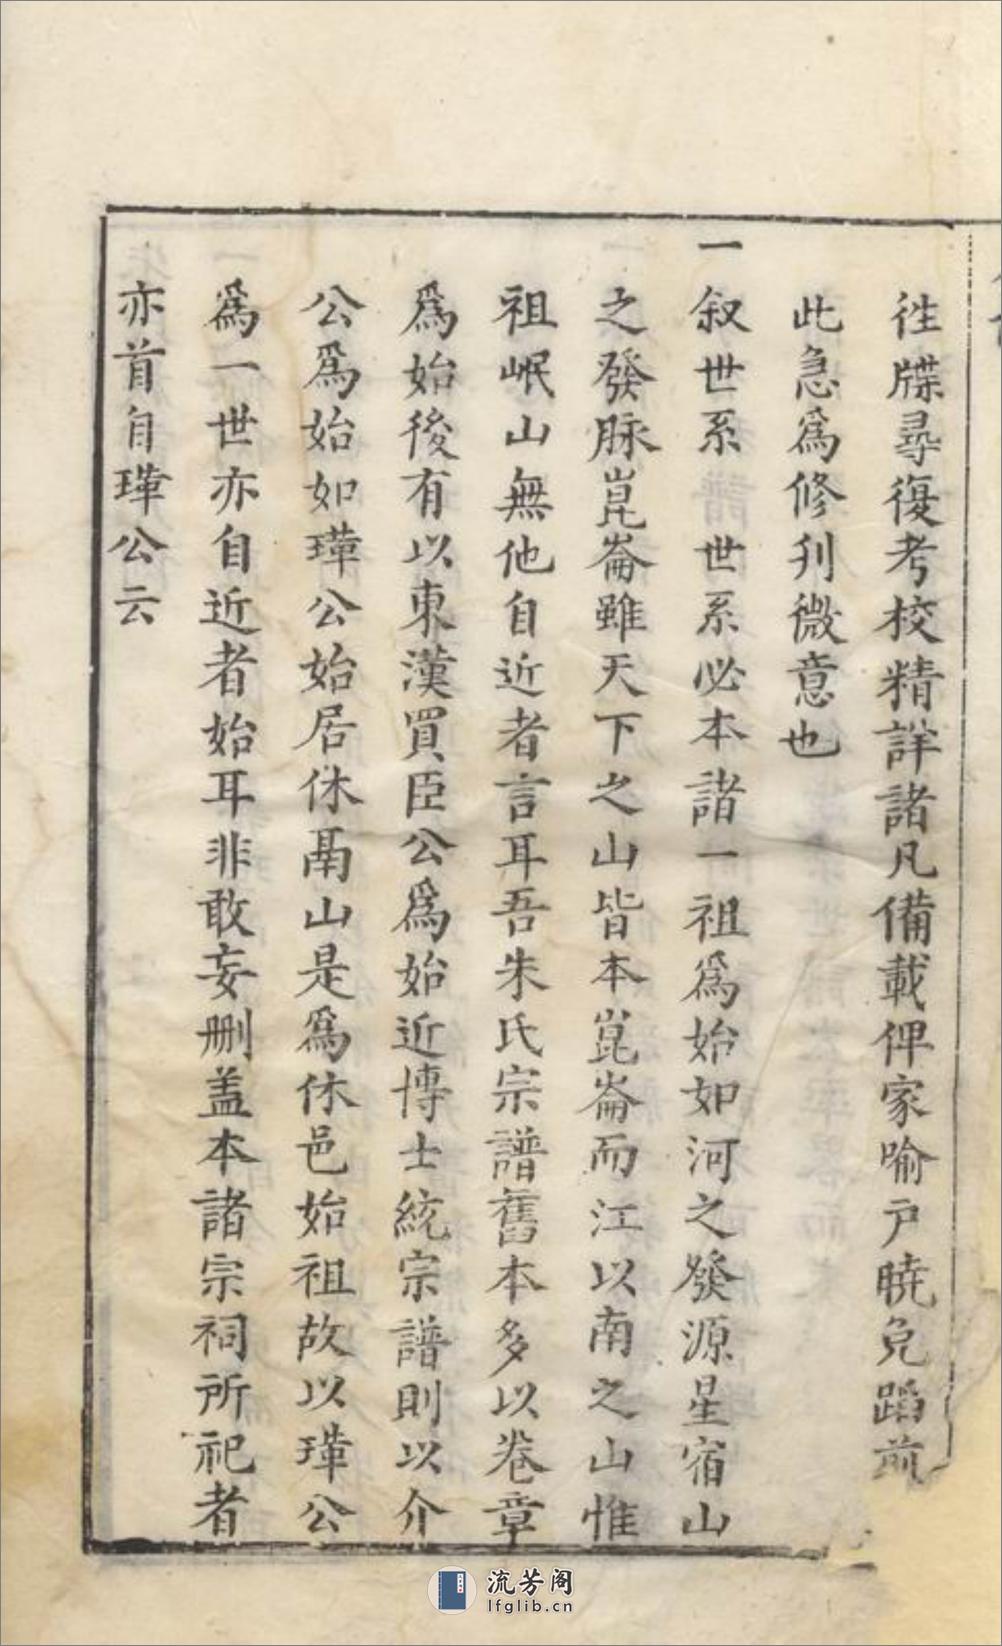 徃牒尋復考校精詳諸凡備載俾家喻户曉免蹈前
此急爲修刋微意也
一叙世系 世系必本諸一祖爲始如河之發源星宿山
之發脉崑崙雖天下之山皆本崑崙而江以南之山惟
祖岷山無他自近者言耳吾朱氏宗譜舊本多以卷章
爲始後有以東漢買臣公爲始近博士統宗譜則以介
公爲始如瑋公始居休鬲山是爲休邑始祖故以瑋公
爲一世亦自近者始耳非敢妄刪盖本諸宗祠所祀者
亦首自瑋公云
流芳阁
lfglib.cn